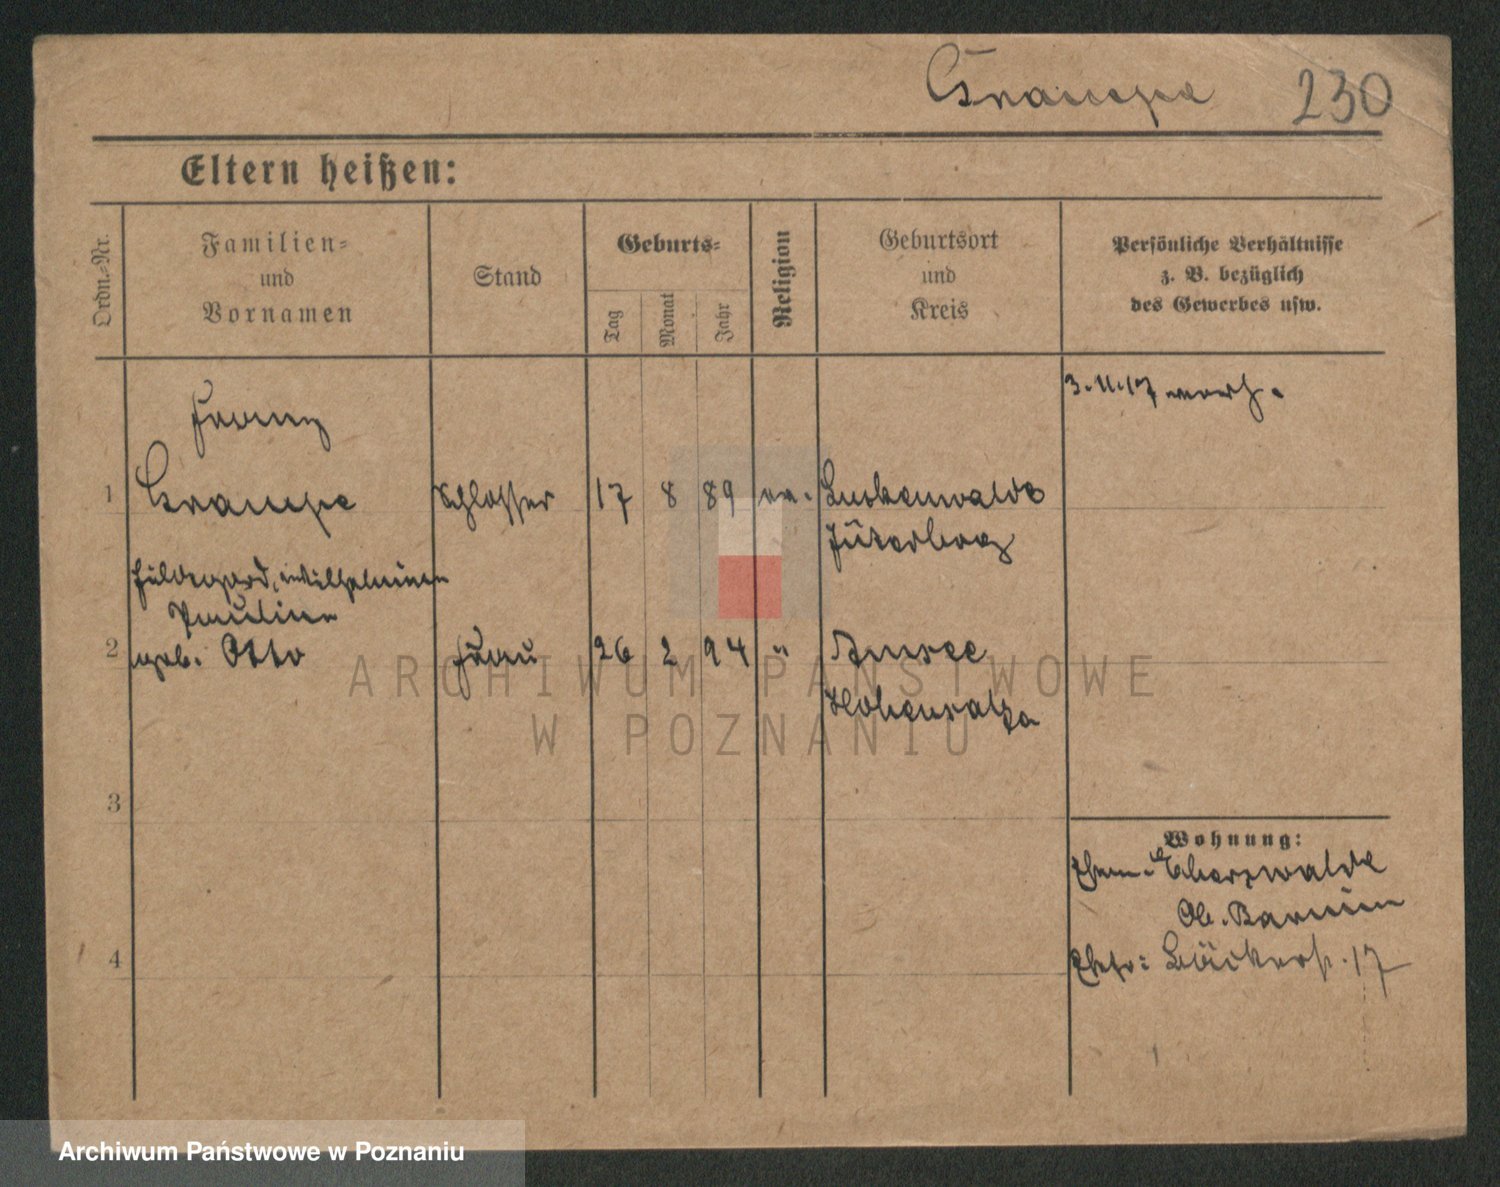 Grampe 230
Eltern heißen:
Ordn.-Nr.
Familien-
und
Vornamen
Stand
Geburts-
Tag
Monat
Jahr
Religion
Geburtsort
und
Kreis
Persönliche Verhältnisse
z. B. bezüglich
des Gewerbes usw.
3.11.17 verh.
Franz
1 Grampe Schlosser 17 8 89 ev. Luckenwalde
Jüterborg
Hildegard, Wilhelmine
Pauline
2 geb. Otto Frau 26 2 94 " Amsee
Hohensalza
3
Wohnung:
Ehem. Eberswalde
Ob. Barnim
4 Ehefr: Bäckerstr. 17
ARCHIWUM PAŃSTWOWE
W POZNANIU
Archiwum Państwowe w Poznaniu